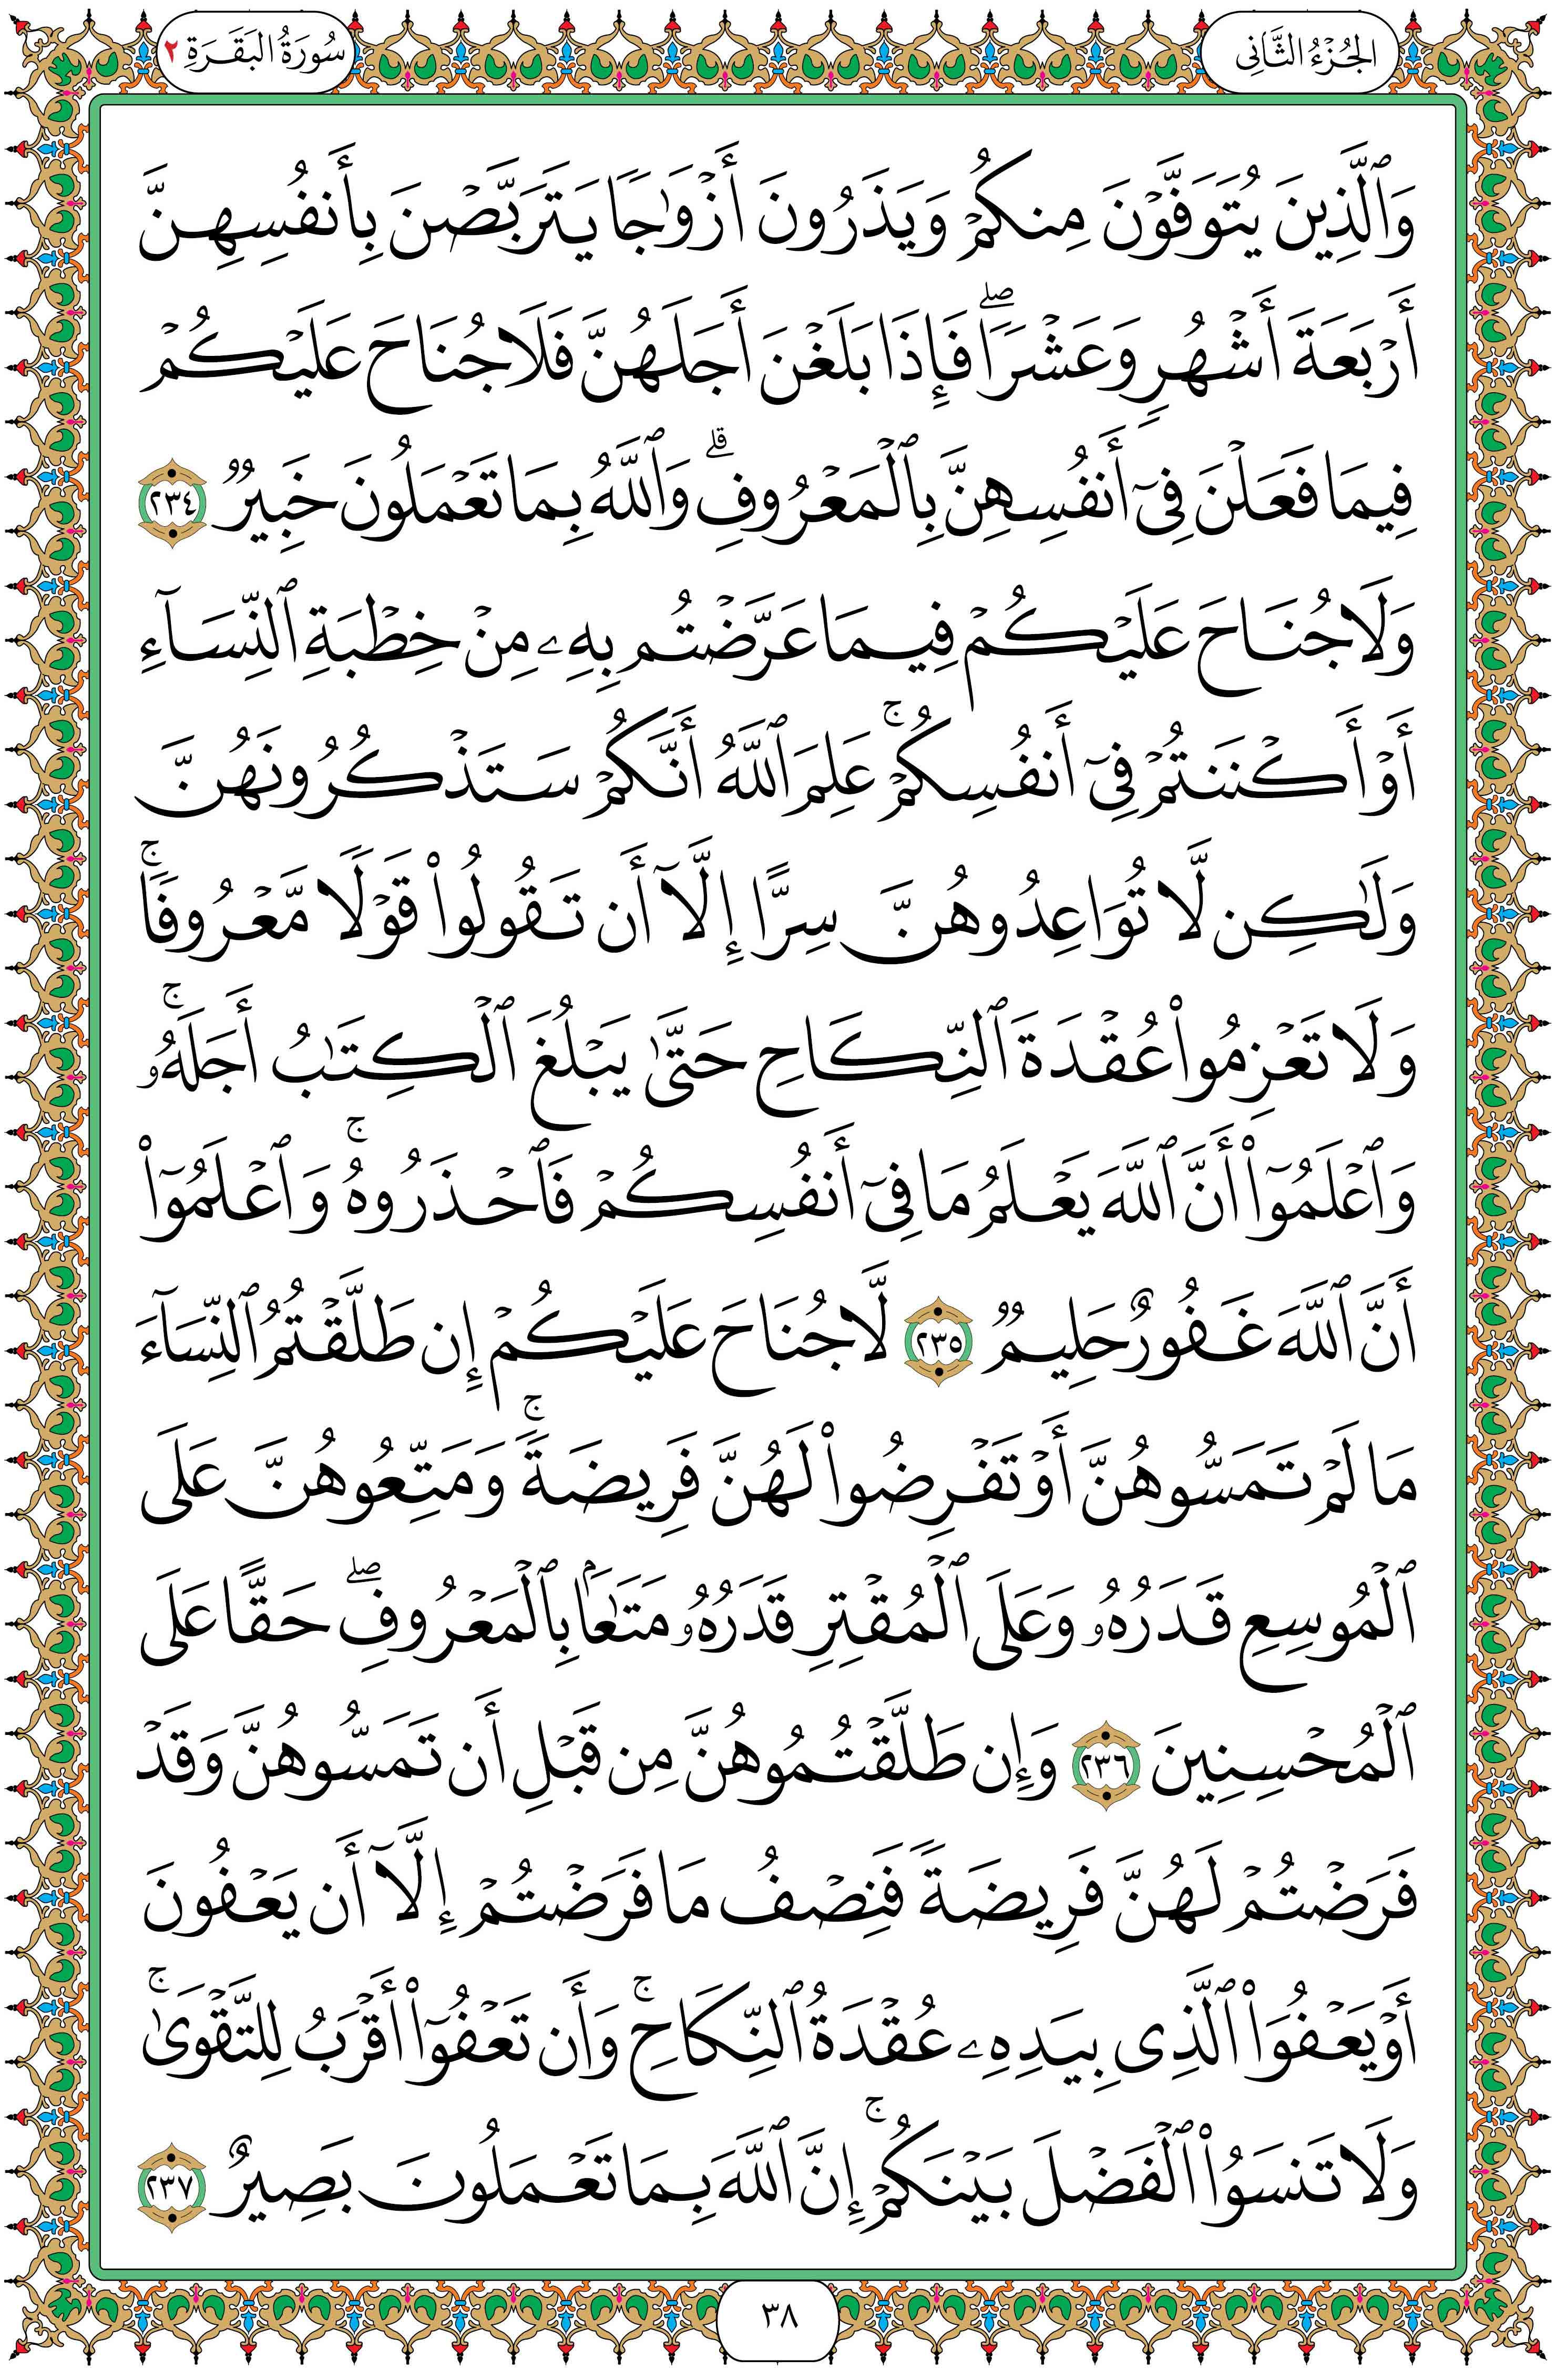 الجُزْءُ الثَّانِى
سُورَةُ البَقَرَةِ ٢
وَٱلَّذِينَ يُتَوَفَّوْنَ مِنكُمْ وَيَذَرُونَ أَزْوَٰجًا يَتَرَبَّصْنَ بِأَنفُسِهِنَّ
أَرْبَعَةَ أَشْهُرٍ وَعَشْرًا ۖ فَإِذَا بَلَغْنَ أَجَلَهُنَّ فَلَا جُنَاحَ عَلَيْكُمْ
فِيمَا فَعَلْنَ فِىٓ أَنفُسِهِنَّ بِٱلْمَعْرُوفِ ۗ وَٱللَّهُ بِمَا تَعْمَلُونَ خَبِيرٌ ٢٣٤
وَلَا جُنَاحَ عَلَيْكُمْ فِيمَا عَرَّضْتُم بِهِۦ مِنْ خِطْبَةِ ٱلنِّسَآءِ
أَوْ أَكْنَنتُمْ فِىٓ أَنفُسِكُمْ ۚ عَلِمَ ٱللَّهُ أَنَّكُمْ سَتَذْكُرُونَهُنَّ
وَلَـٰكِن لَّا تُوَاعِدُوهُنَّ سِرًّا إِلَّآ أَن تَقُولُوا۟ قَوْلًا مَّعْرُوفًا ۚ
وَلَا تَعْزِمُوا۟ عُقْدَةَ ٱلنِّكَاحِ حَتَّىٰ يَبْلُغَ ٱلْكِتَـٰبُ أَجَلَهُۥ ۚ
وَٱعْلَمُوٓا۟ أَنَّ ٱللَّهَ يَعْلَمُ مَا فِىٓ أَنفُسِكُمْ فَٱحْذَرُوهُ ۚ وَٱعْلَمُوٓا۟
أَنَّ ٱللَّهَ غَفُورٌ حَلِيمٌ ٢٣٥ لَّا جُنَاحَ عَلَيْكُمْ إِن طَلَّقْتُمُ ٱلنِّسَآءَ
مَا لَمْ تَمَسُّوهُنَّ أَوْ تَفْرِضُوا۟ لَهُنَّ فَرِيضَةً ۚ وَمَتِّعُوهُنَّ عَلَى
ٱلْمُوسِعِ قَدَرُهُۥ وَعَلَى ٱلْمُقْتِرِ قَدَرُهُۥ مَتَـٰعًۢا بِٱلْمَعْرُوفِ ۖ حَقًّا عَلَى
ٱلْمُحْسِنِينَ ٢٣٦ وَإِن طَلَّقْتُمُوهُنَّ مِن قَبْلِ أَن تَمَسُّوهُنَّ وَقَدْ
فَرَضْتُمْ لَهُنَّ فَرِيضَةً فَنِصْفُ مَا فَرَضْتُمْ إِلَّآ أَن يَعْفُونَ
أَوْ يَعْفُوَا۟ ٱلَّذِى بِيَدِهِۦ عُقْدَةُ ٱلنِّكَاحِ ۚ وَأَن تَعْفُوٓا۟ أَقْرَبُ لِلتَّقْوَىٰ ۚ
وَلَا تَنسَوُا۟ ٱلْفَضْلَ بَيْنَكُمْ ۚ إِنَّ ٱللَّهَ بِمَا تَعْمَلُونَ بَصِيرٌ ٢٣٧
٣٨